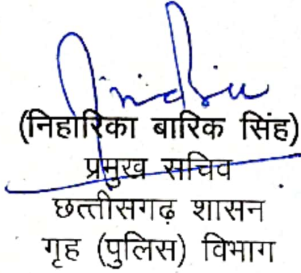 (निहारिका बारिक सिंह)
प्रमुख सचिव
छत्तीसगढ़ शासन
गृह (पुलिस) विभाग